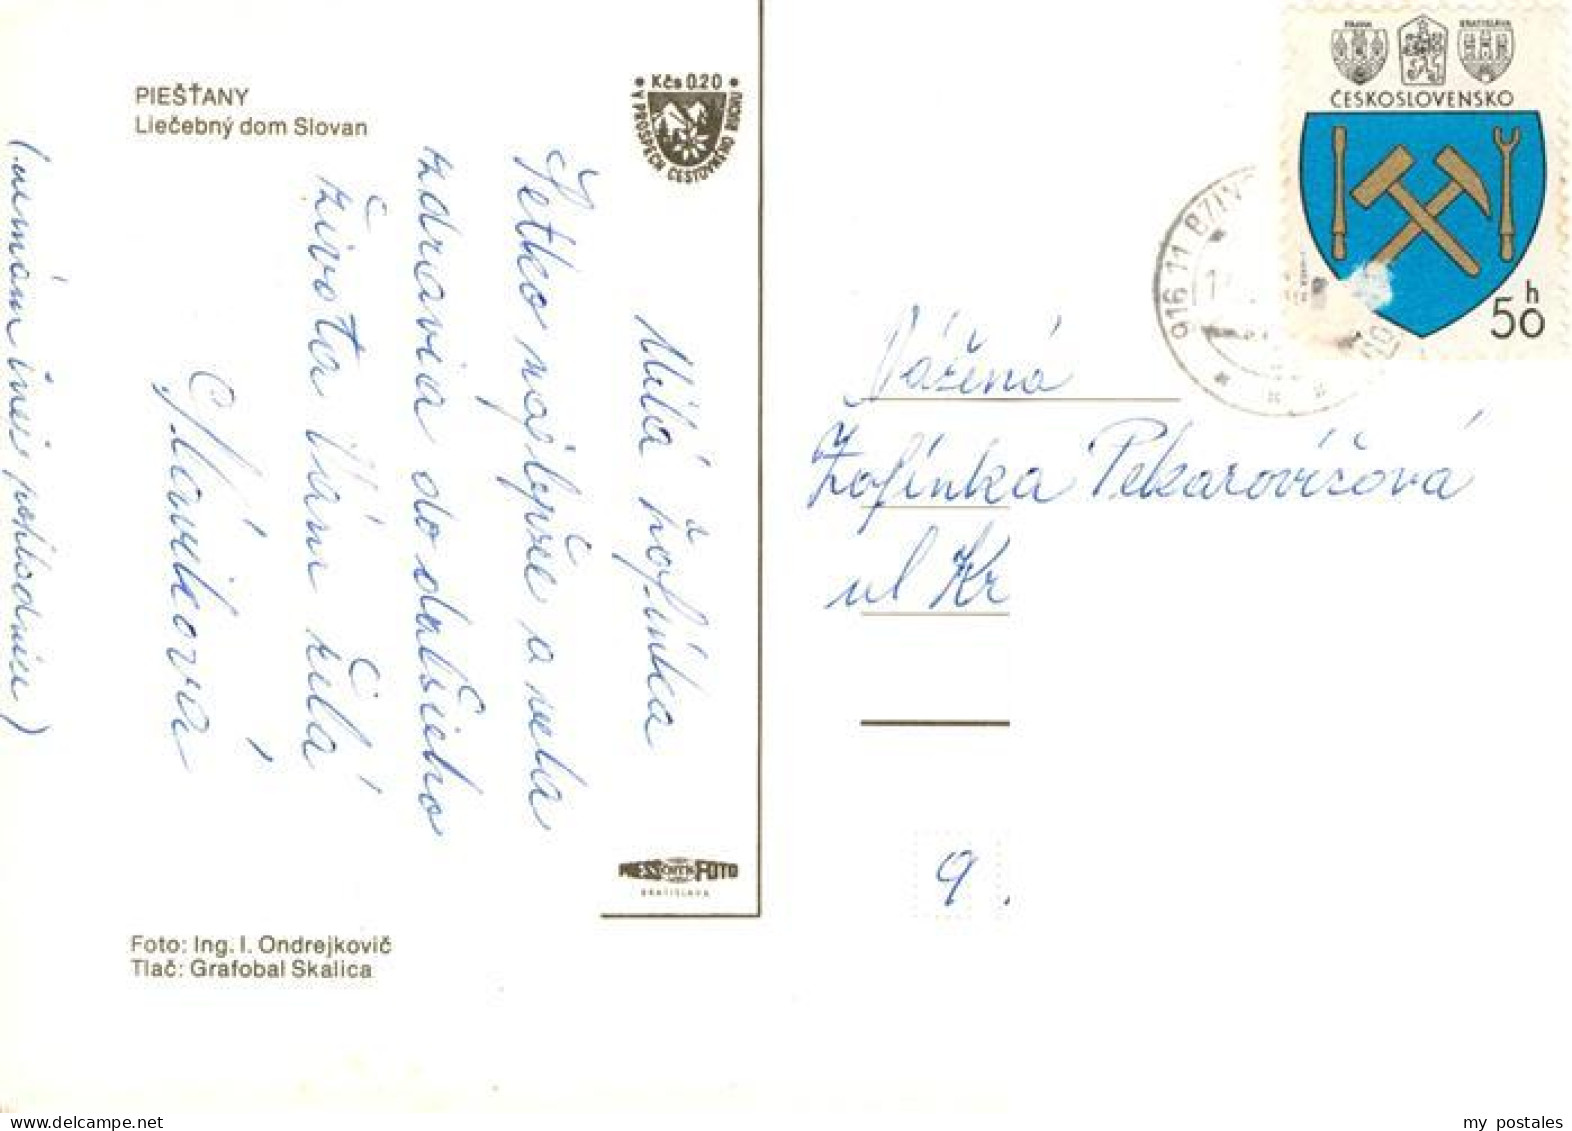 PIEŠŤANY
Liečebný dom Slovan
Kčs 0.20
V PROSPECH CESTOVNÉHO RUCHU
Milá Žofinka
Všetko najlepšie a vela
zdravia do dalšieho
života Vám želá
Slávikova
(nemám inej pohladnice)
PRESSFOTO
BRATISLAVA
Foto: Ing. I. Ondrejkovič
Tlač: Grafobal Skalica
PRAHA
BRATISLAVA
ČESKOSLOVENSKO
50 h
916 11 BZINC
Vážená
Žofínka Pekarovičová
ul Kr
9
my postales